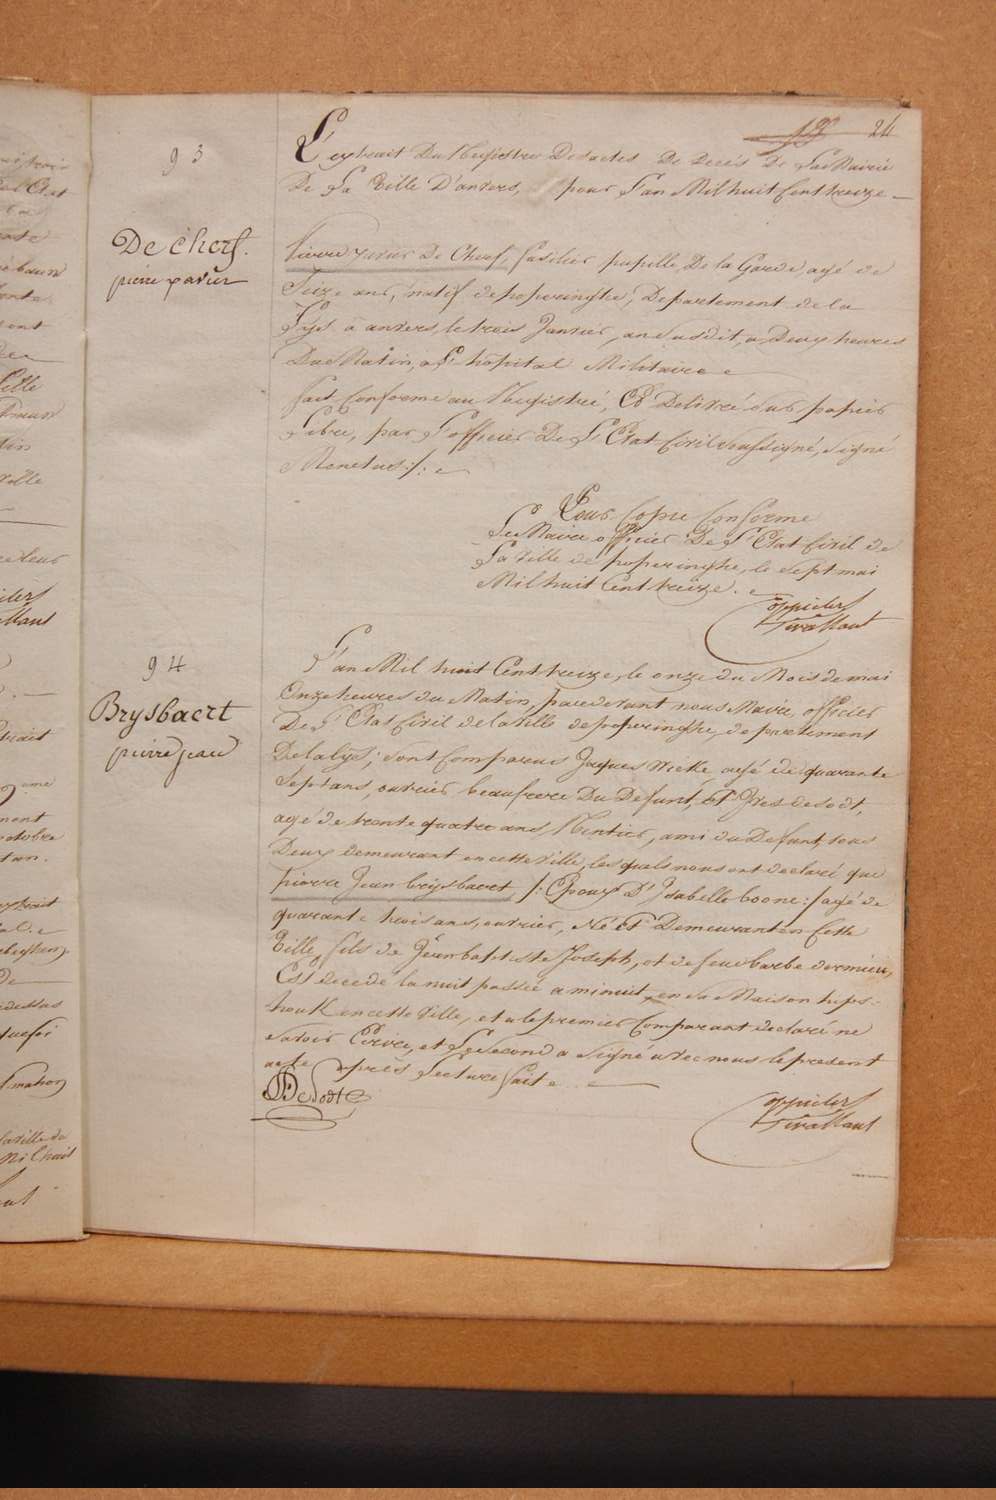 24
93
L'extrait Du Registre Des actes De Decés De La Mairie
De La Ville D'anvers, pour L'an Mil huit Cent treize
De Cherf.
pierre xavier
pierre xavier De Cherf, fusilier pupille De la Garde agé de
Seize ans, natif de poperinghe, Departement de la
Lijs à anvers, le trois Janvier, an susdit, a Deux heures
Du Matin, a L'hôpital Militaire
fait Conforme au Registre, Et Delivré sur papier
Libre, par L'officier De L'Etat Civil soussigné, signé
Pour Copie Conforme
Le Maire officier De L'Etat Civil de
La Ville de poperinghe, le sept mai
Mil huit Cent treize.
94
Brysbaert
pierre jean
L'an Mil huit Cent treize, le onze du Mois de mai
Onze heures du Matin, pardevant nous Maire, officier
De L'Etat Civil de la ville de poperinghe, departement
De la lijs, sont Comparus Jacques agé de quarante
Sept ans, ouvrier beaufrere Du Defunt, Et Yves desodt,
agé de trente quatre ans, Rentier, ami du Defunt, tous
Deux demeurant en cette Ville, lesquels nous ont declaré que
pierre Jean brijsbaert /: Epoux D'Isabelle boone :/ agé de
quarante trois ans, ouvrier, Né Et Demeurant en Cette
Ville, fils de Jean baptiste Joseph, et de feue barbe
Est decedé la nuit passée a minuit, en sa Maison
houk en cette Ville, et a le premier Comparant declaré ne
savoir Ecrire, et Le Second a signé avec nous le present
acte après Lecture faite.
DeSodt